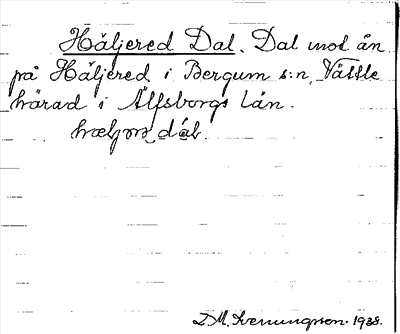 Häljered Dal. Dal mot ån
på Häljered i Bergum s:n, Vättle
härad i Älfsborgs län.
D. M. Svenungson. 1938.